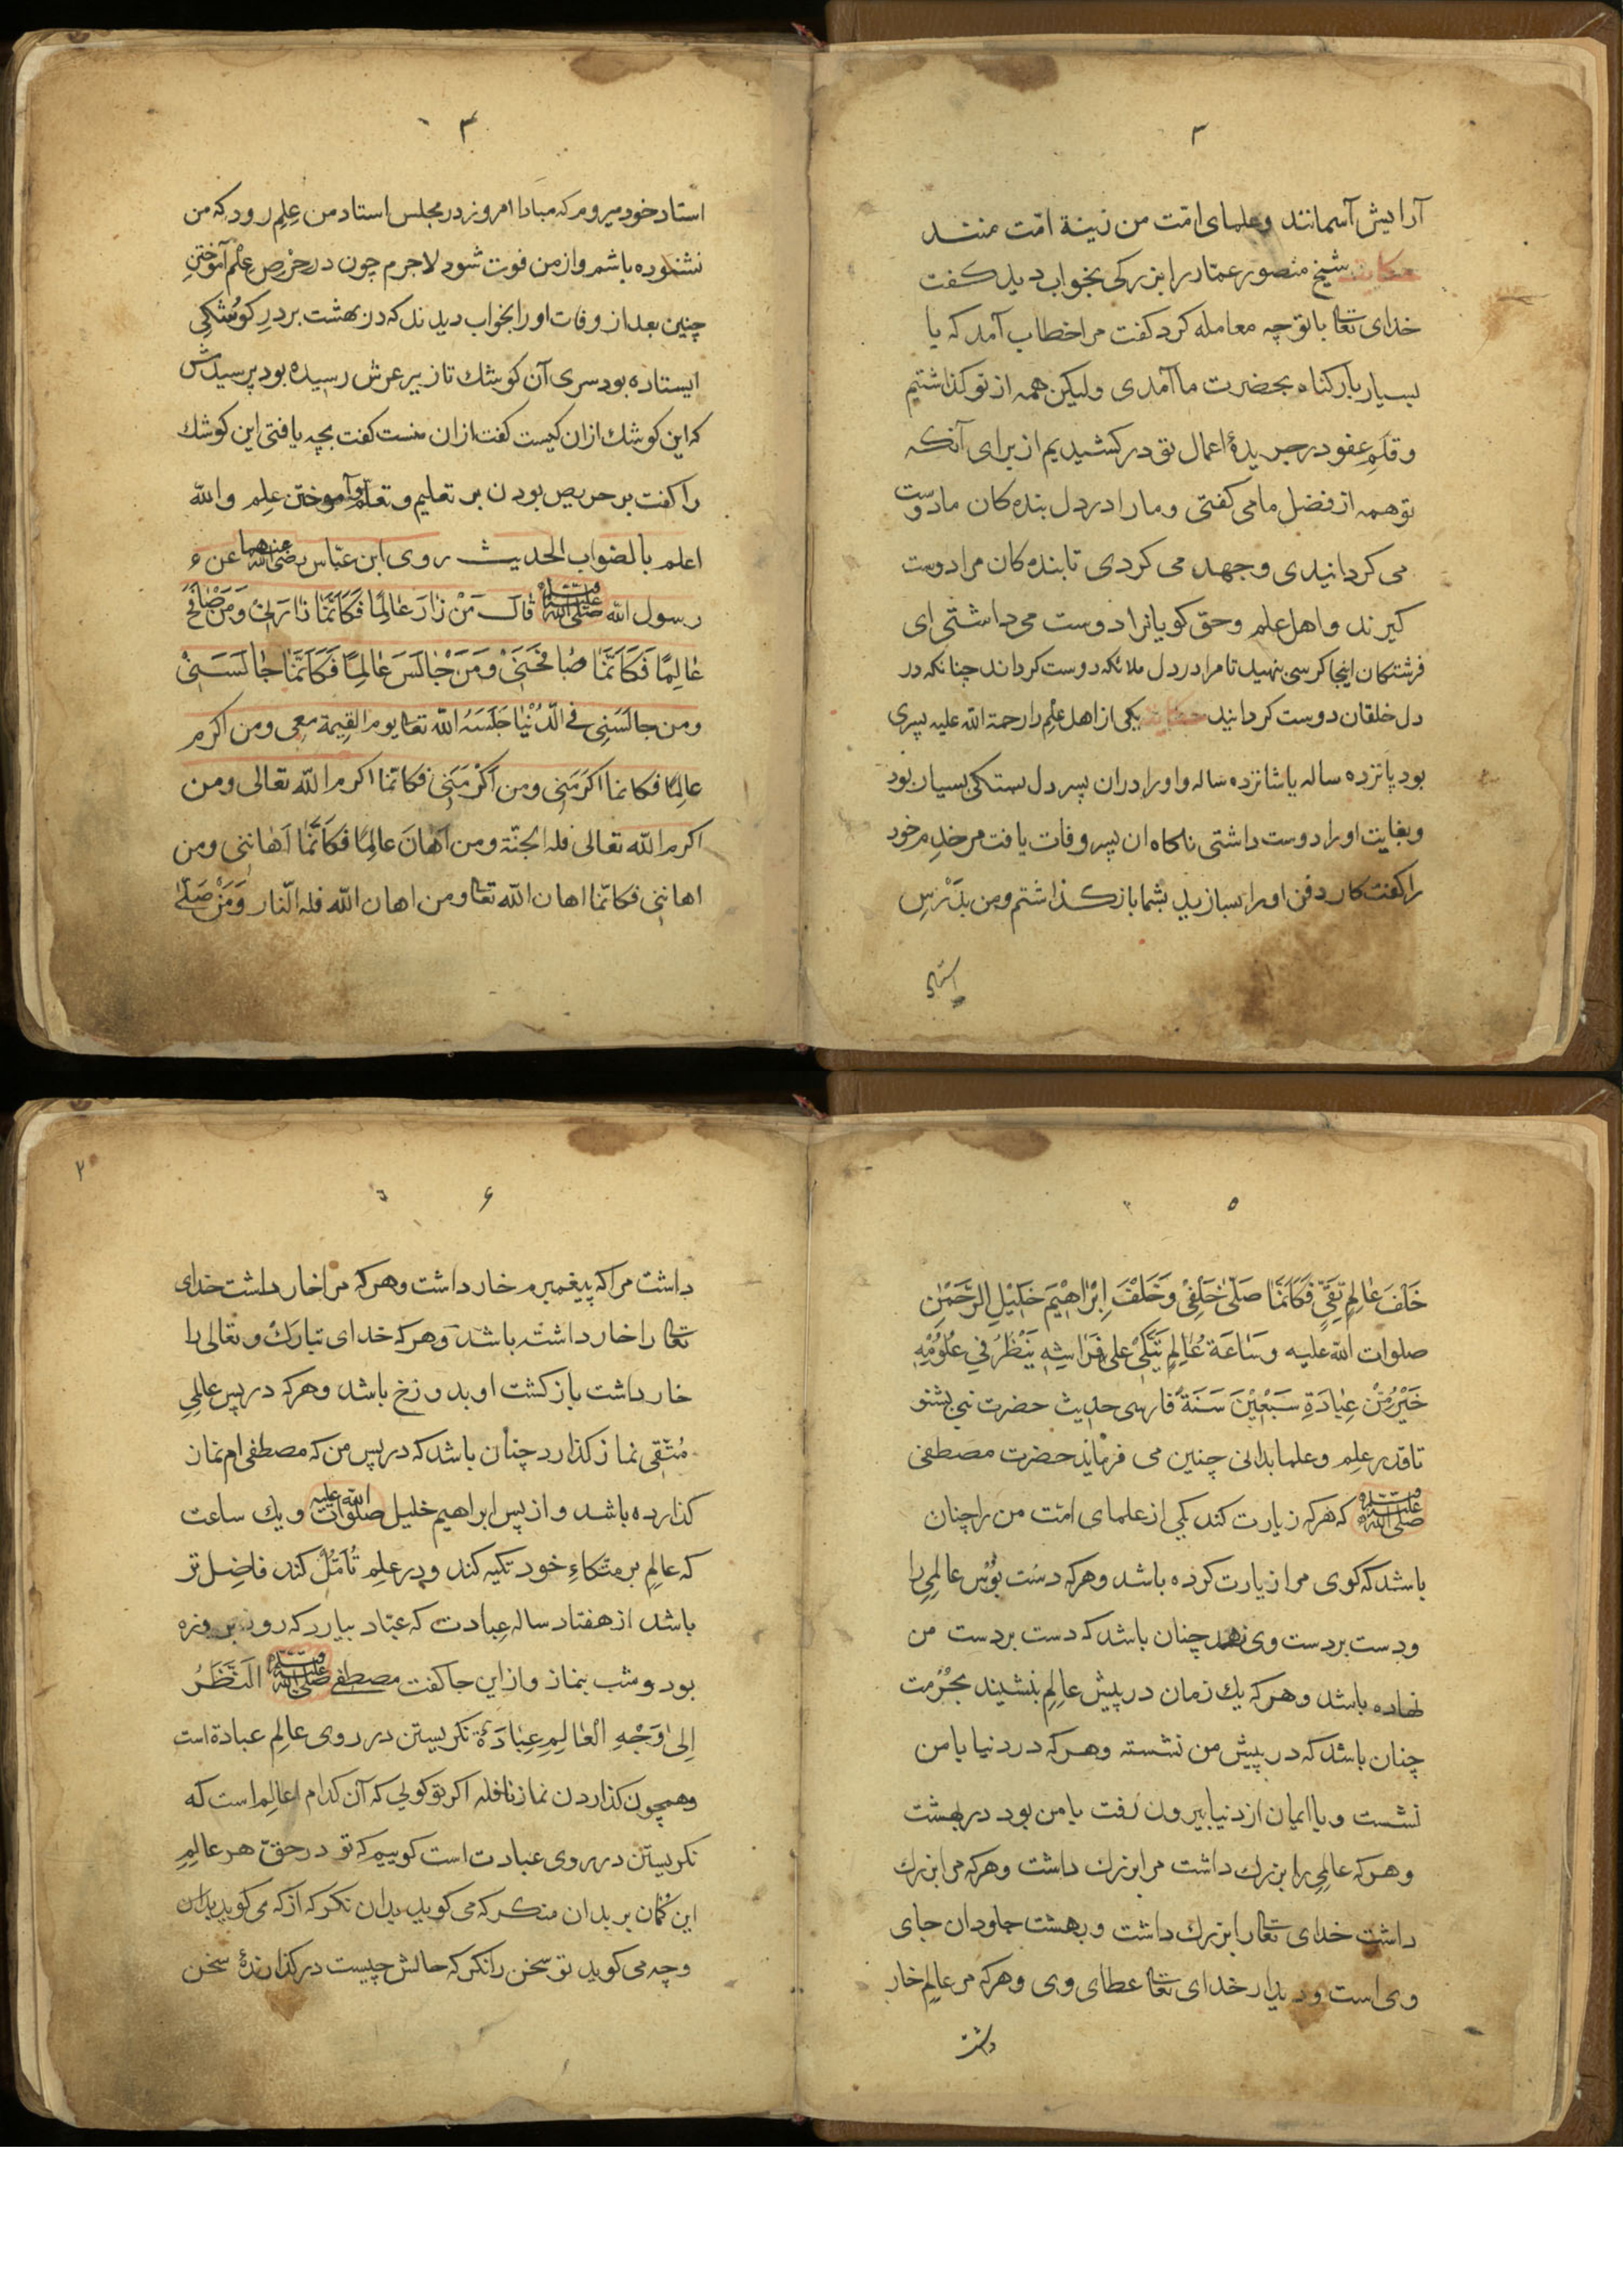 ۳
آرایش آسمانند وعلمای امّت من زینة امّت منند
حکایت شیخ منصور عمّار را بزرکی بخواب دید کفت
خدای تعا باتو چه معامله کرد کفت مرا خطاب آمد که یا
بسیار بار کناه بحضرت ما آمدی ولیکن همه از تو کذاشتیم
وقلمِ عفو در جریدهٔ اعمال تو درکشیدیم از برای آنکه
تو همه از فضل ما می کفتی وما را در دل بنده کان ما دوست
می کردانیدی وجهد می کردی تا بنده کان مرا دوست
کیرند واهل علم وحق کویانرا دوست می داشتی ای
فرشتکان اینجا کرسی بنهید تا مرا در دل ملائکه دوست کرداند چنانکه در
دل خلقان دوست کردانید حکایت یکی از اهل علم را رحمة الله علیه پسری
بود پانزده ساله یا شانزده ساله واورا دران پسر دل بستکی بسیار بود
وبغایت اورا دوست داشتی ناکاه ان پسر وفات یافت مر خدم خود
را کفت کار دفن اورا بسازید بشما باز کذاشتم ومن بدَرْسِ
استاد
۴
استاد خود میروم که مبادا امروز در مجلس استاد من عِلم رود که من
نشنوده باشم واز من فوت شود لاجرم چون در حرْصِ علْم آموختن
چنین بعد از وفات اورا بخواب دیدند که در بهشت بر درِ کوشکی
ایستاده بود سری آن کوشك تا زیر عرش رسیده بود پرسیدش
که این کوشك ازان کیست کفت ازان منست کفت بچه یافتی این کوشك
را کفت بر حریص بودن بر تعلیم وتعلم وآموختن علم والله
اعلم بالصّواب الحدیث روی ابن عبّاس رضی الله عنهما عن ۶
رسول الله صلی الله علیه وسلم قالَ مَنْ زٰارَ عٰالِمًا فَکَاَنَّمٰا زٰارَنِیْ وَمَنْ صٰافَحَ
عٰالِمًا فَکَاَنَّمٰا صٰافَحَنِیْ وَمَنْ جٰالَسَ عٰالِمًا فَکَاَنَّمٰا جٰالَسَنِیْ
ومن جالَسَنِی فِی الدُّنْیٰا جَلَسَهُ الله تعا یوم القیمة معی ومن اکرم
عالِمًا فکانما اکرَمَنِی ومن اَکْرَمَنِی فکانّما اکرم الله تعالی ومن
اکرم الله تعالی فله الجنّة ومن اَهانَ عالِمًا فَکَاَنَّمٰا اَهٰانَنِی ومن
اهاننی فکانّما اهان الله تعا ومن اهان الله فله النّار وَمَنْ صَلّیٰ
۵
خَلْفَ عٰالِمٍ تَقِیٍّ فَکَاَنَّمٰا صَلّیٰ خَلْفِیْ وَخَلْفَ اِبْرٰاهِیْمَ خَلِیْلِ الرَّحْمٰنِ
صلوات الله علیه وَسٰاعَة عٰالِمٍ یَتَّکِیْ علی فَرٰاشِهِ یَنْظُرُ فِی عُلُوْمِهِ
خَیْرٌ مِنْ عِبٰادَةِ سَبْعِیْنَ سَنَةً فارسی حدیث حضرت نبی بشنو
تا قدر علم وعلما بدانی چنین می فرماید حضرت مصطفی
صلی الله علیه وسلم که هرکه زیارت کند یکی از علمای امّت من را چنان
باشد که کوی مرا زیارت کرده باشد وهرکه دست بوُس عالِمی را
ودست بر دست وی نهد چنان باشد که دست بر دست من
نهاده باشد وهرکه یك زمان در پیش عالِم بنشیند بحُرْمت
چنان باشد که در پیش من نشسته وهرکه در دنیا با من
نشست وبا ایمان از دنیا بیرون رفت با من بود در بهشت
وهرکه عالمی را بزرك داشت مرا بزرك داشت وهرکه مرا بزرك
داشت خدای تعا را بزرك داشت وبهشت جاودان جای
وی است ودیدار خدای تعا عطای وی وهرکه مر عالم خار
داشت
۶
داشت مرا که پیغمبرم خار داشت وهرکه مرا خار داشت خدای
تعا را خار داشته باشد وهرکه خدای تبارك وتعالی را
خار داشت باز کشت او بدوزخ باشد وهرکه در پس عالمیِ
مُتّقی نماز کذارد چنان باشد که در پس من که مصطفی ام نماز
کذارده باشد واز پس ابراهیم خلیل صلوات الله علیه ویك ساعت
که عالِم بر متّکاءِ خود تکیه کند ودر علم تُأمّلْ کند فاضِل تر
باشد از هفتاد ساله عِبادت که عبّاد بیارد که روز بروزه
بود وشب بنماز وازین جا کفت مصطفی صلی الله علیه وسلم اَلنَّظَرُ
اِلیٰ وَجْهِ الْعٰالِمِ عِبٰادَةٌ نکریستن در روی عالِم عبادة است
وهمچون کذاردن نماز نافله اکر تو کویی که آن کدام عالِم است که
نکریستن در روی عبادت است کوییم که تو در حقّ هر عالِمِ
این کُمان بر بدان منکر که می کوید بدان نکر که از که می کوید بدان
وچه می کوید تو سخن را نکر که حالش چیست در کذارندهٔ سخن